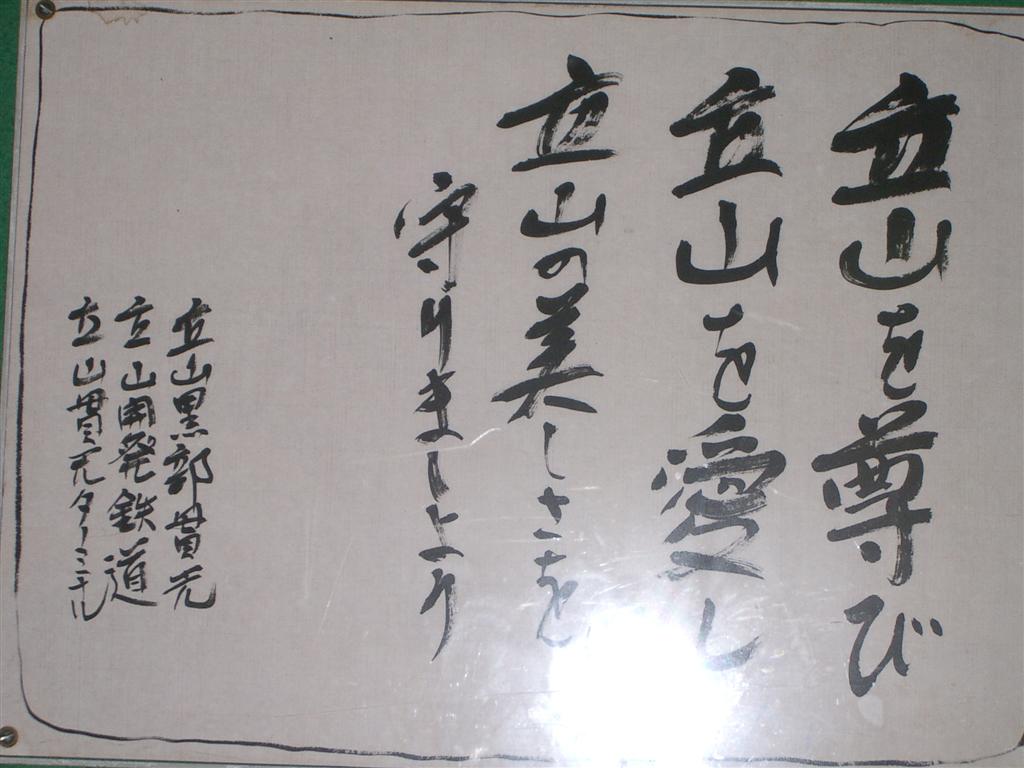 立山を尊び
立山を愛し
立山の美しさを
守りましよう
立山黒部貫光
立山開発鉄道
立山貫光ターミナル